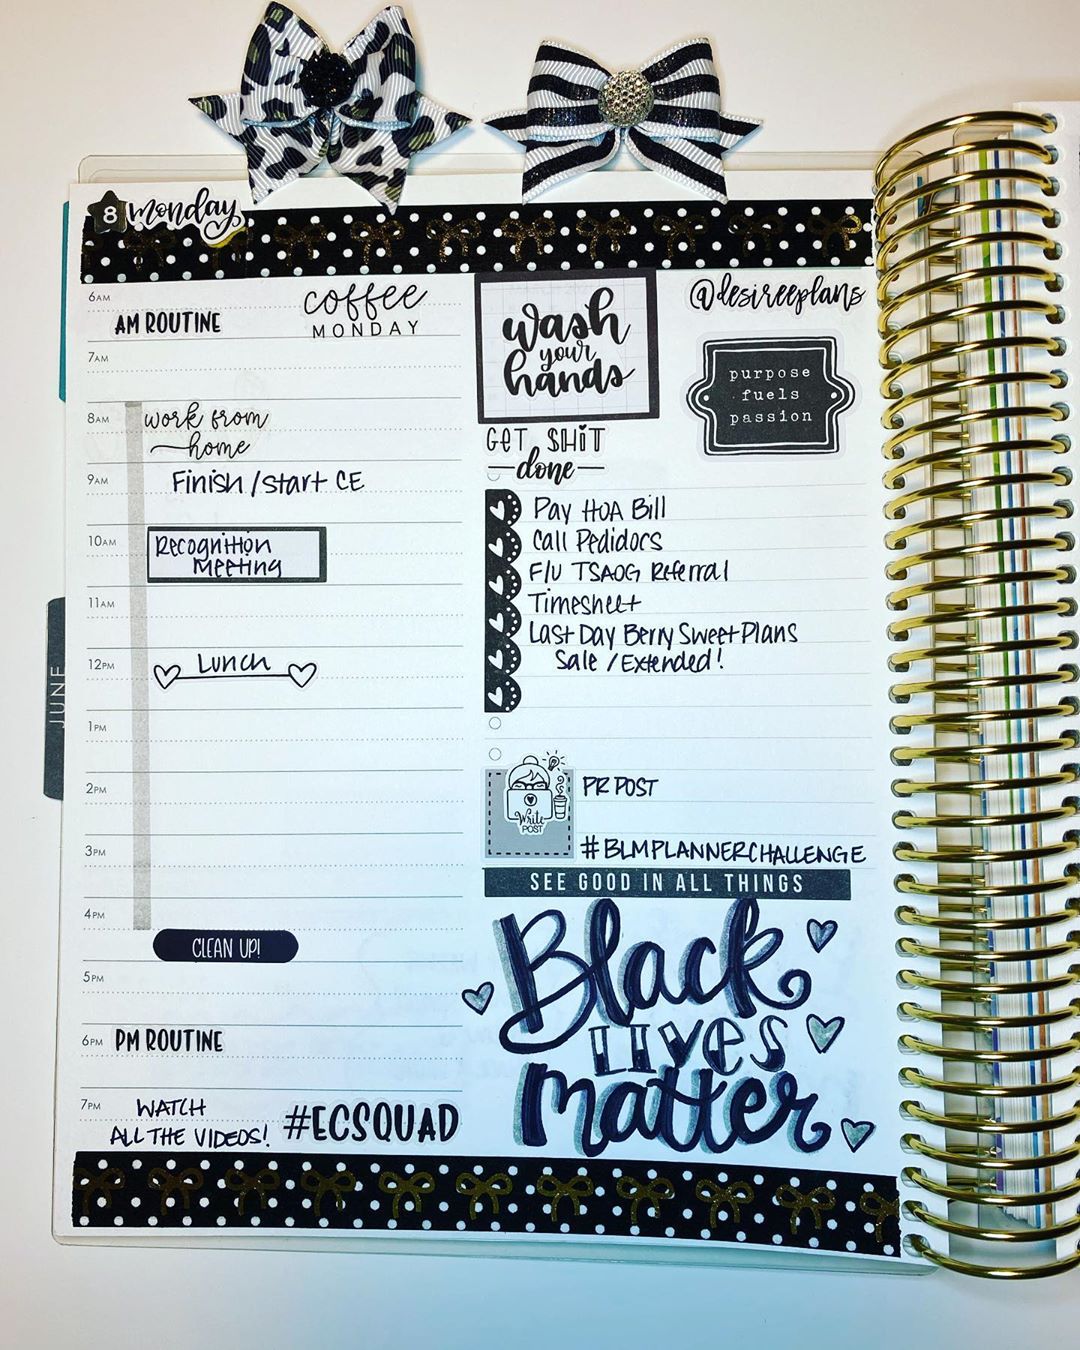 8 monday
6AM
AM ROUTINE
coffee
MONDAY
7AM
8AM
work from
home
9AM
Finish/start CE
10AM
Recognition
Meeting
11AM
12PM
Lunch
1PM
2PM
3PM
4PM
CLEAN UP!
5PM
6PM
PM ROUTINE
7PM
WATCH
ALL THE VIDEOS!
#ECSQUAD
JUNE
wash
your
hands
@desireeplans
purpose
fuels
passion
GET SHIT
done
Pay HOA Bill
Call Pedidocs
F/U TSAOG Referral
Timesheet
Last Day Berry Sweet Plans
Sale / Extended!
Write
POST
PR POST
#BLMPLANNERCHALLENGE
SEE GOOD IN ALL THINGS
Black
LIVES
Matter